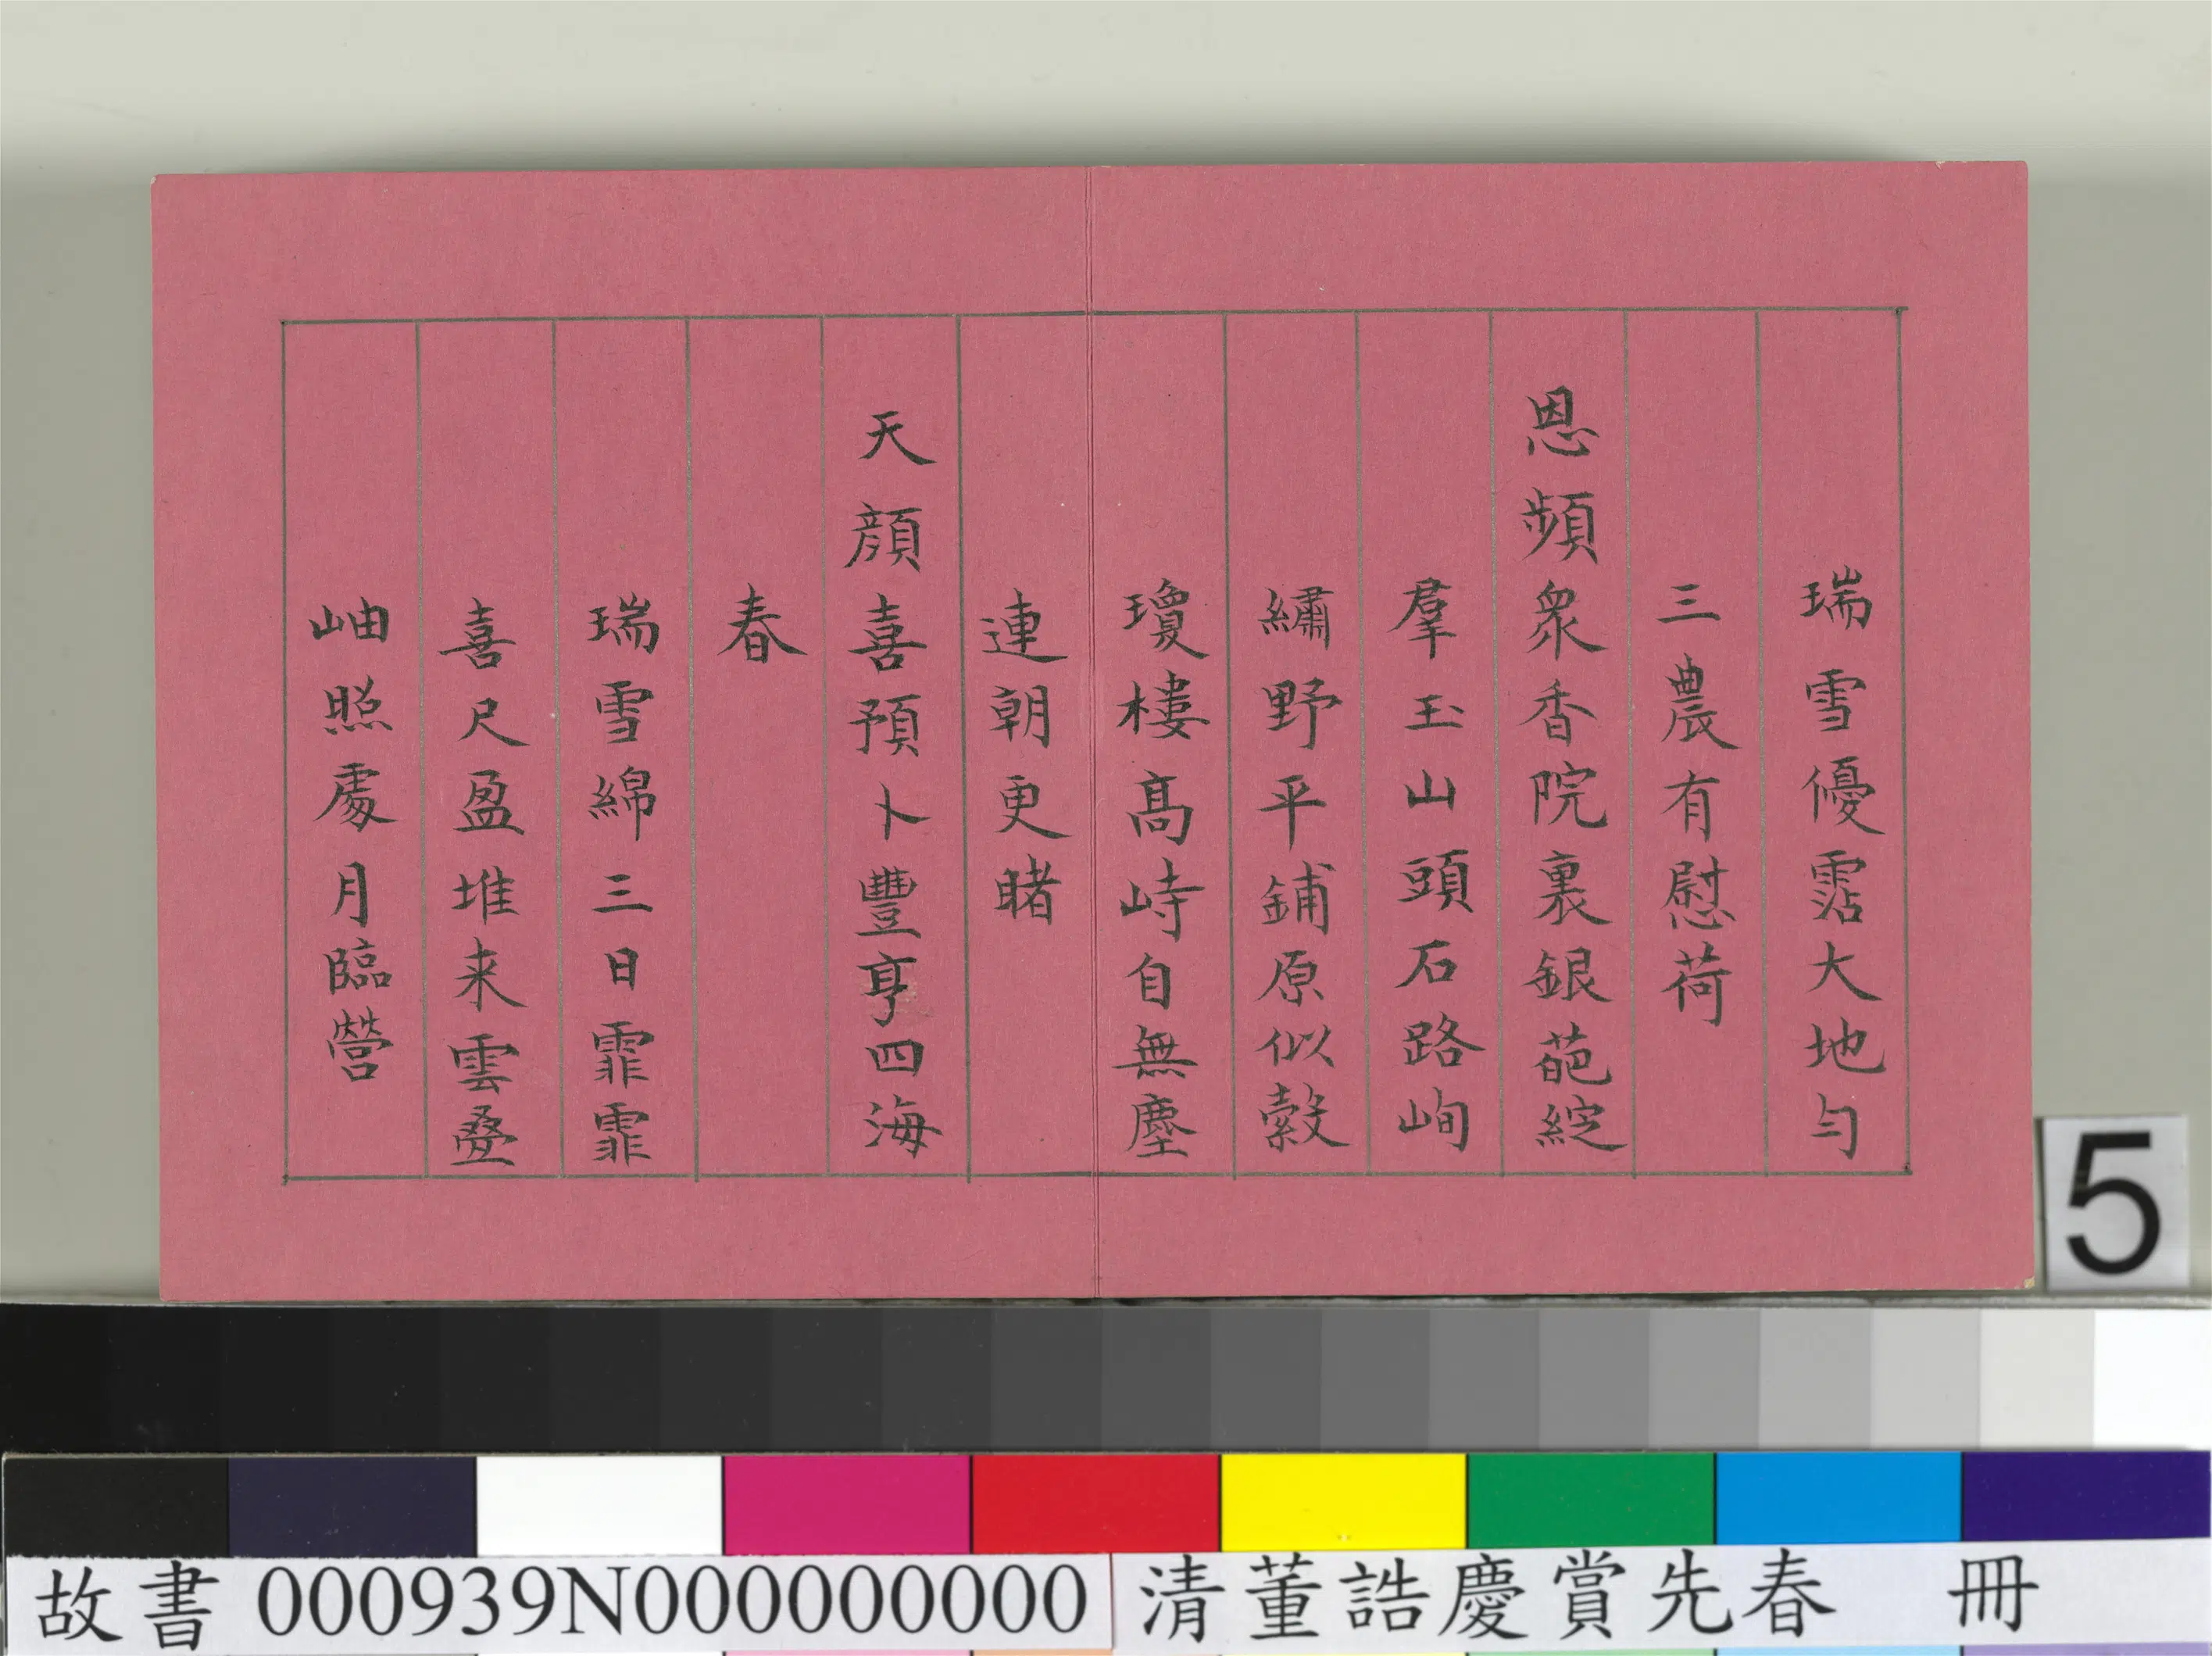 瑞雪優霑大地勻
三農有慰荷
恩頻衆香院裏銀葩綻
羣玉山頭石路峋
繡野平鋪原似縠
瓊樓髙峙自無塵
連朝更睹
天顏喜預卜豐亨四海
春
瑞雪綿三日霏霏
喜尺盈堆来雲疊
岫照處月臨營
5
故書 000939N000000000 清董誥慶賞先春 冊